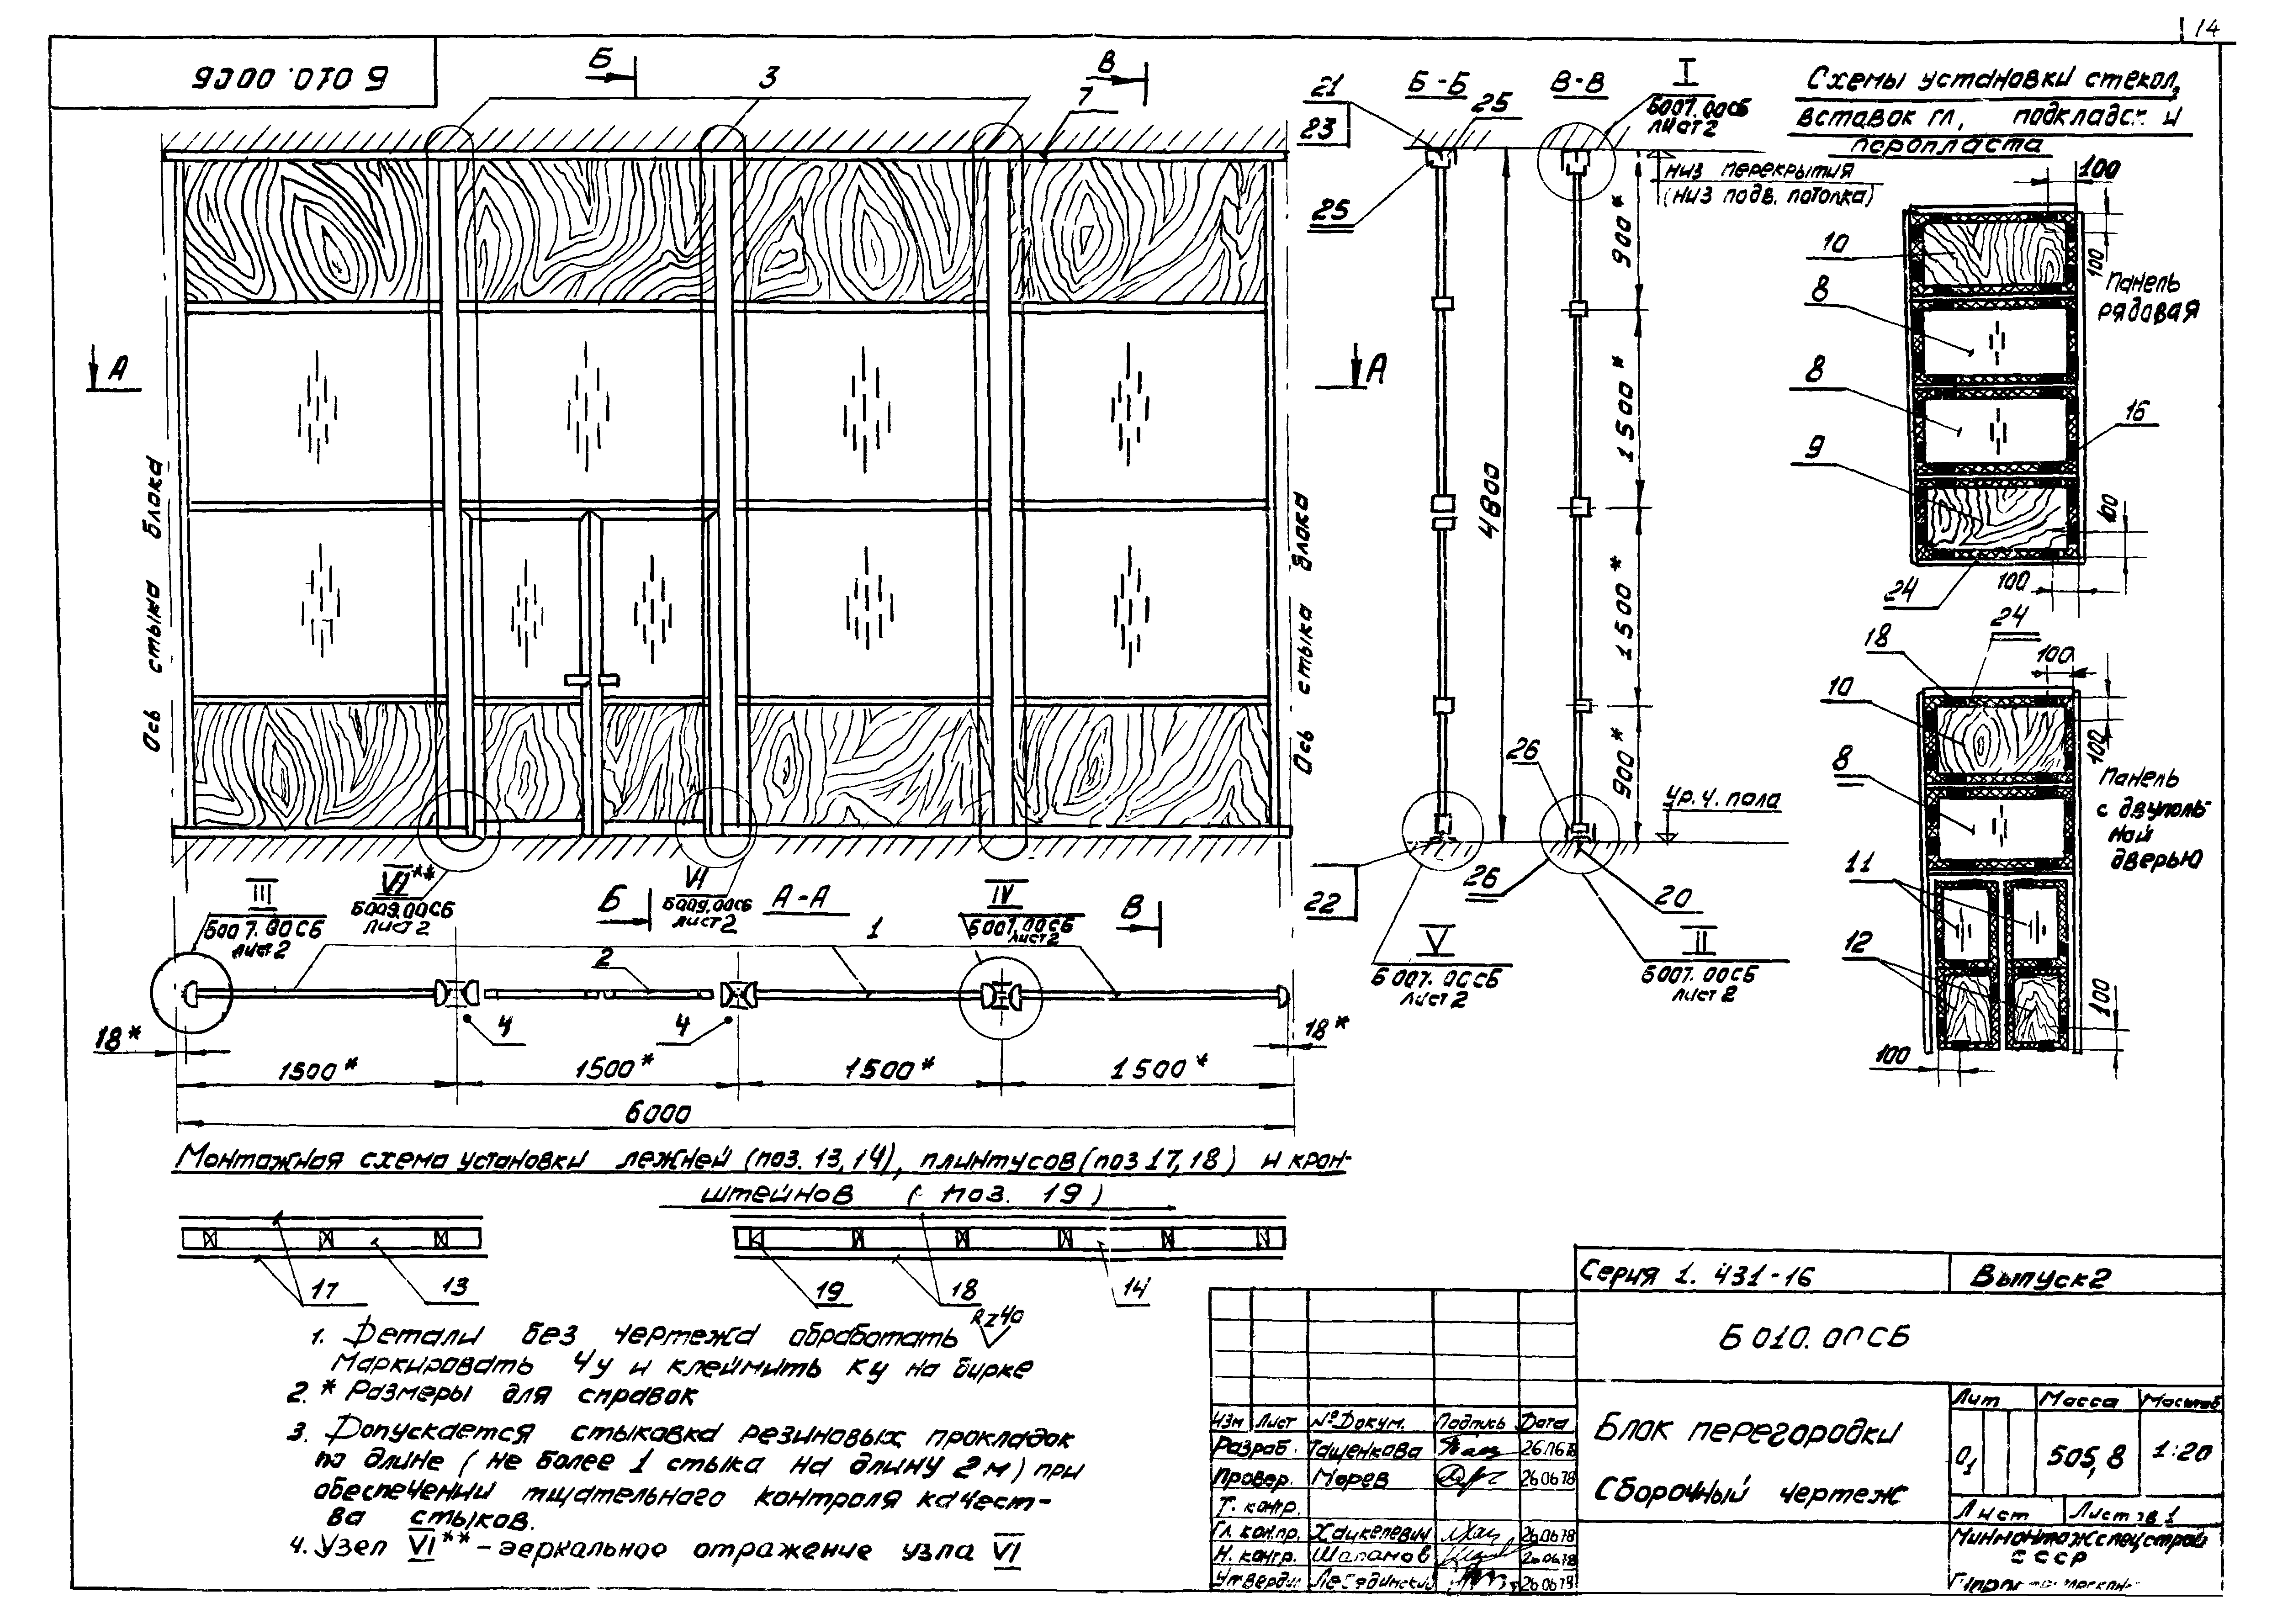 14
Б 010.00СБ
Б
3
В
7
А
А
Ось стыка блока
Ось стыка блока
III
Б007.00СБ
лист 2
VI**
Б009.00СБ
лист 2
Б
VI
Б009.00СБ
лист 2
А-А
IV
Б007.00СБ
лист 2
В
1
2
4
4
18*
18*
1500*
1500*
1500*
1500*
6000
21
23
25
Б-Б
25
В-В
I
Б007.00СБ
лист 2
низ перекрытия
(низ подв. потолка)
900*
1500*
4800
1500*
900*
26
ур. ч. пола
22
26
20
V
Б007.00СБ
лист 2
II
Б007.00СБ
лист 2
Схемы установки стекол,
вставок гл, подкладок и
поропласта
100
100
10
Панель
рядовая
8
8
16
9
100
100
24
24
18
100
10
100
8
Панель
с двуполь-
ной
дверью
11
12
100
100
Монтажная схема установки лежней (поз. 13, 14), плинтусов (поз 17, 18) и крон-
штейнов (поз. 19)
17
13
19
18
14
1. Детали без чертежа обработать Rz40
Маркировать Чу и клеймить Ку на бирке
2. * Размеры для справок
3. Допускается стыковка резиновых прокладок
по длине (не более 1 стыка на длину 2м) при
обеспечении тщательного контроля качест-
ва стыков.
4. Узел VI** - зеркальное отражение узла VI
Серия 1.431-16
Выпуск 2
Б 010.00СБ
Изм Лист № Докум. Подпись Дата
Разраб. Тащенкова 26.06.78
Провер. Морев 26.06.78
Т. контр.
Гл. кон.пр. Хацкелевич 26.06.78
Н. контр. Шапанов 26.06.78
Утверди Лебединский 26.06.78
Блок перегородки
Сборочный чертеж
Лит Масса Масштаб
01 505,8 1:20
Лист Листов 1
Минмонтажспецстрой
СССР